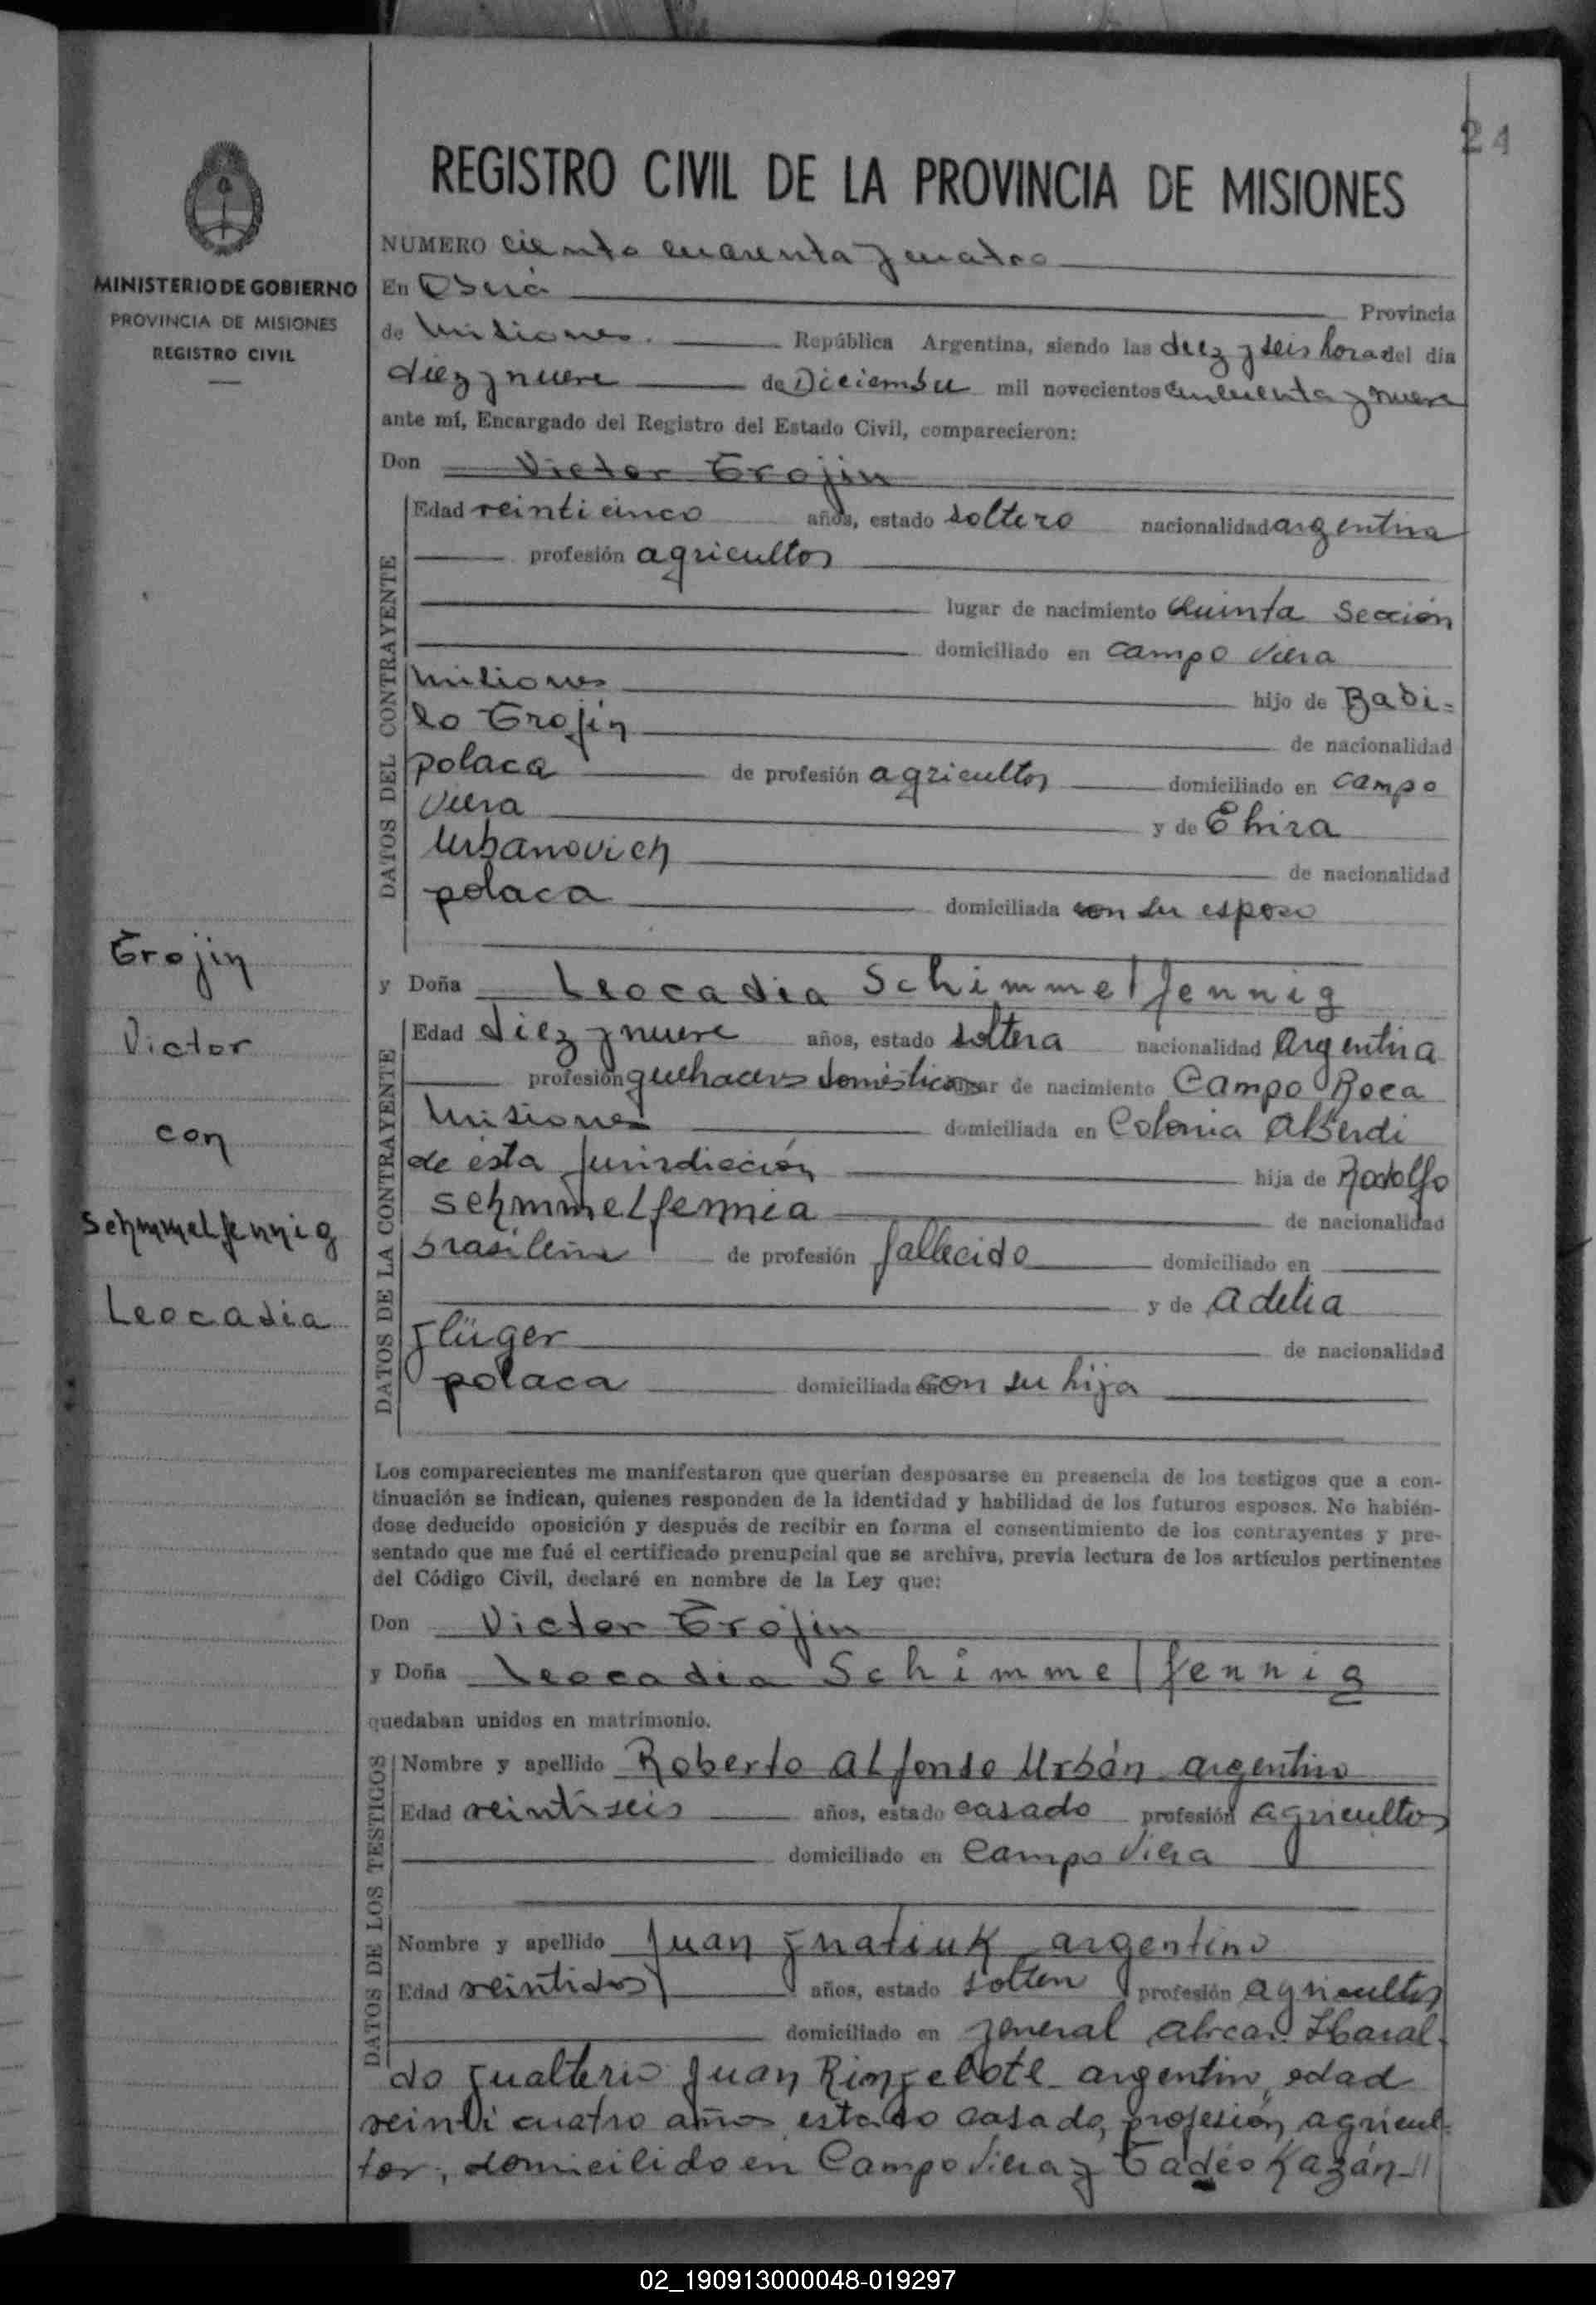 24
REGISTRO CIVIL DE LA PROVINCIA DE MISIONES
MINISTERIO DE GOBIERNO
PROVINCIA DE MISIONES
REGISTRO CIVIL
NUMERO ciento cuarenta y cuatro
En Oberá Provincia
de Misiones. República Argentina, siendo las diez y seis horas del día
diez y nueve de Diciembre mil novecientos cincuenta y nueve
ante mí, Encargado del Registro del Estado Civil, comparecieron:
Don Victor Trojin
DATOS DEL CONTRAYENTE
Edad veinticinco años, estado soltero nacionalidad argentina
profesión agricultor
lugar de nacimiento Quinta Sección
domiciliado en Campo Viera
Misiones hijo de Basi=
lo Trojin de nacionalidad
polaca de profesión agricultor domiciliado en Campo
Viera y de
Urbanovich de nacionalidad
polaca domiciliada con su esposo
y Doña Leocadia Schimmelfennig
DATOS DE LA CONTRAYENTE
Edad diez y nueve años, estado soltera nacionalidad Argentina
profesión quehaceres domésticos lugar de nacimiento Campo Roca
Misiones domiciliada en Colonia Alberdi
de ésta jurisdicción hija de Rodolfo
de nacionalidad
de profesión fallecido domiciliado en
y de Adelia
Flüger de nacionalidad
polaca domiciliada en con su hija
Trojin
Victor
con
Schmmelfennig
Leocadia
Los comparecientes me manifestaron que querían desposarse en presencia de los testigos que a con-
tinuación se indican, quienes responden de la identidad y habilidad de los futuros esposos. No habién-
dose deducido oposición y después de recibir en forma el consentimiento de los contrayentes y pre-
sentado que me fué el certificado prenupcial que se archiva, previa lectura de los artículos pertinentes
del Código Civil, declaré en nombre de la Ley que:
Don Victor Trojin
y Doña Leocadia Schimmelfennig
quedaban unidos en matrimonio.
DATOS DE LOS TESTIGOS
Nombre y apellido Roberto Alfonso Urbán argentino
Edad veintiseis años, estado casado profesión agricultor
domiciliado en Campo Viera
Nombre y apellido Juan argentino
Edad veintidos años, estado soltero profesión agricultor
domiciliado en General Alvear. Haral-
do Gualterio Juan argentino, edad
veinticuatro años, estado casado, profesión agricul-
tor, domicilido en Campo Viera y Tadéo Kazán //
02_190913000048-019297